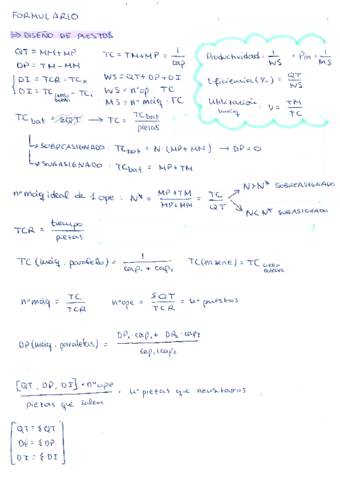 FORMULARIO
⇒ DISEÑO DE PUESTOS
QT = MM+MP
TC = TM+MP = 1/cap
DP = TM-MM
DI = TCR - TCx
WS = QT + DP + DI
DI = TC cuello botella - TCi
WS = nºop · TC
MS = nº máq · TC
Productividad: 1/WS = Pm = 1/MS
Eficiencia (%) = QT/WS
Utilización máq: U = TM/TC
TCbat = ΣQT → TC = TCbat/piezas
SOBREASIGNADO: TCbat = N·(MP+MM) → DP=0
SUBASIGNADO: TCbat = MP+TM
nº máq ideal de 1 ope: N* = MP+TM/MP+MM = TC/QT
N>N* SOBREASIGNADO
N<N* SUBASIGNADO
TCR = tiempo/piezas
TC (máq. paralelo) = 1/cap₁ + cap₂
TC(en serie) = TC cuello botella
nº máq = TC/TCR
nº ope = ΣQT/TCR = nº puestos
DP (máq. paralelas) = DP₁·cap₁ + DP₂·cap₂/cap₁+cap₂
[QT, DP, DI] · nº ope/piezas que salen · nº piezas que necesitamos
QT = ΣQT
DP = ΣDP
DI = ΣDI